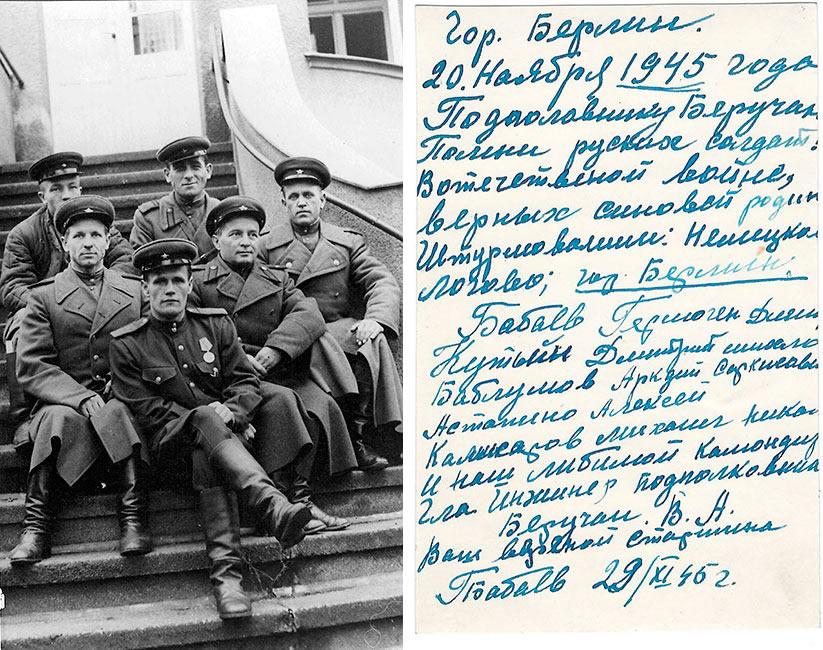 Гор. Берлин.
20. Ноября 1945 года
Подполовнику Беручан
Помни руских солдат:
Вотечетвеной войне,
верных синовой родин
Штурмовалши: Немецкол
Логово; гор. Берлин.
Бабаев Гермоген Дми
Кутьин Дмитрий михаило
Баблумов Аркдий Саркисавы
Астапино Алексей
Калинаров михаил Никол
и наш любимой командир
Гла. Инжинер подполковник
Беручан. В. А.
Ваш старшина
Бабаев 29/XI 45 г.